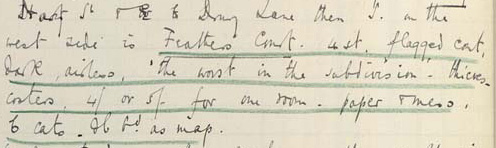 Hart St & to Drury Lane then S. on the
west side is Feathers Court. 4 st. flagged court,
dark, airless, 'the worst in the subdivision - thieves -
costers. 4/ or 5/- for one room - paper & mess,
6 cats. Db bd as map.